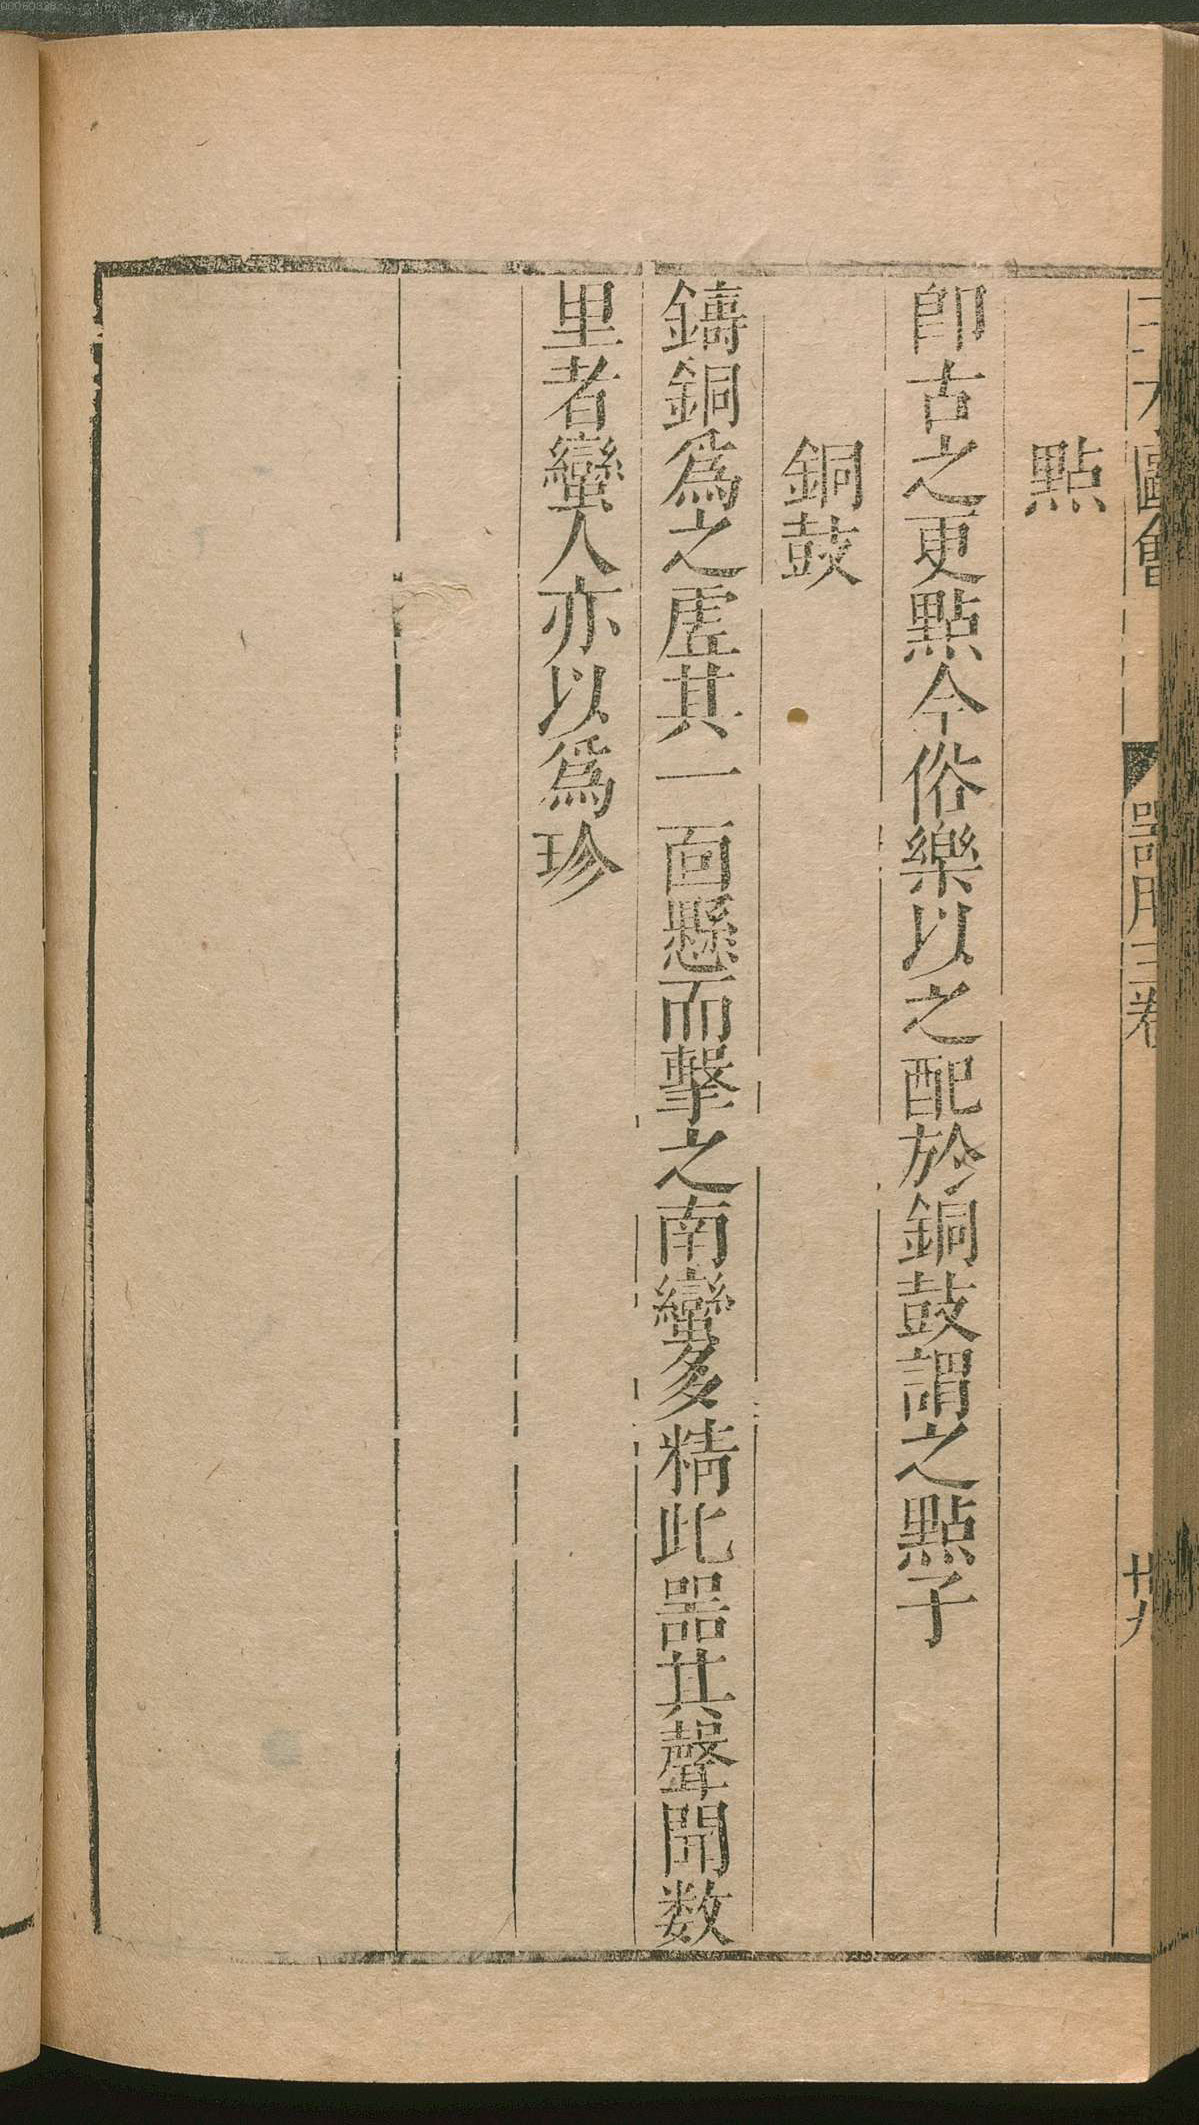 三才圖會 器用三卷 廿九
點
卽古之更點今俗樂以之配於銅鼓謂之點子
銅鼓
鑄銅爲之虗其一面懸而擊之南蠻多精此器其聲聞数
里者蠻人亦以爲珍